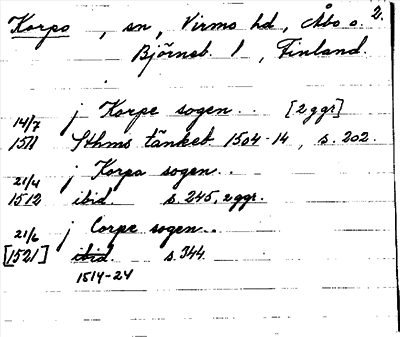 Korpo, sn, Virmo hd, Åbo o. 2.
Björneb. l, Finland.
j Korpe sogen.. [2 ggr]
14/7
1511 Sthms tänkeb. 1504-14, s. 202.
j Korpa sogen..
21/4
1512 ibid. s. 245, 2 ggr.
j Corpe sogen..
21/6
[1521] ibid. s. 344.
1514-24